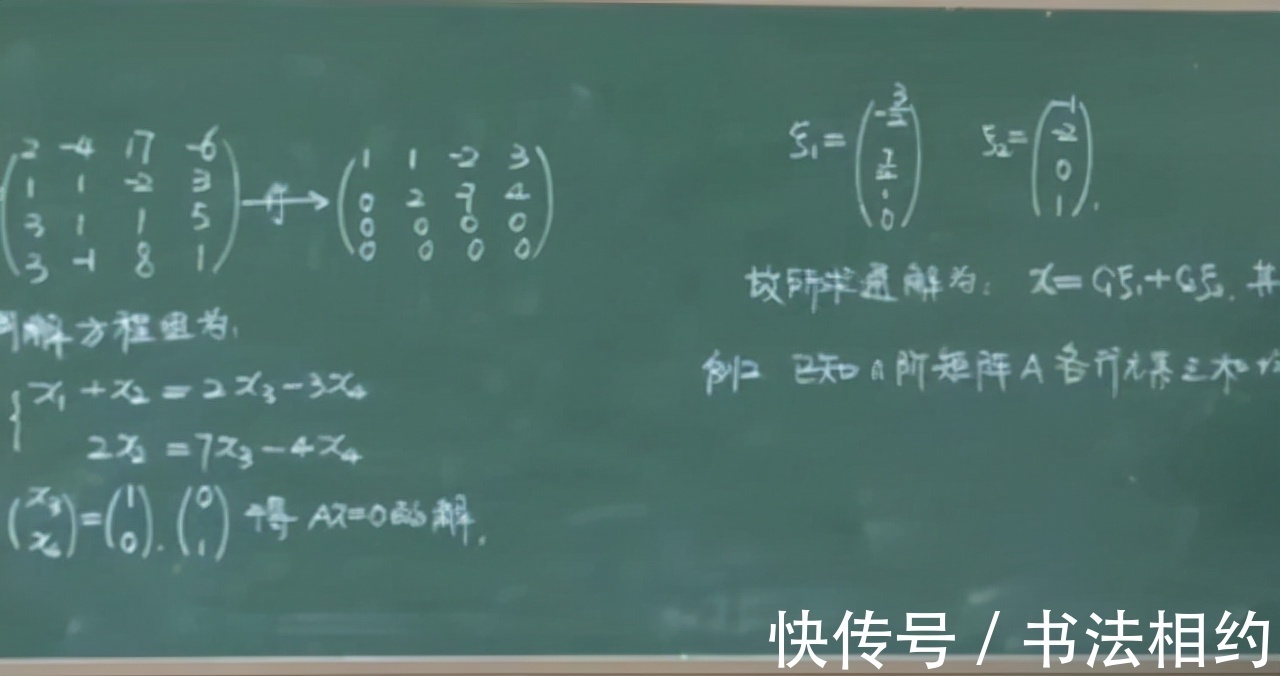 2 -4 17 -6
1 1 -2 3
3 1 1 5
3 -1 8 1
行
1 1 -2 3
0 2 -7 4
0 0 0 0
0 0 0 0
同解方程组为:
x₁ + x₂ = 2x₃ - 3x₄
2x₂ = 7x₃ - 4x₄
(x₃ x₄) = (1 0). (0 1) 得 Ax=0的解.
ξ₁ = (-3/2 7/2 1 0) ξ₂ = (-1 -2 0 1).
故所求通解为: x = C₁ξ₁ + C₂ξ₂. 其
例2 已知n阶矩阵A各行元素之和
快传号 / 书法相约